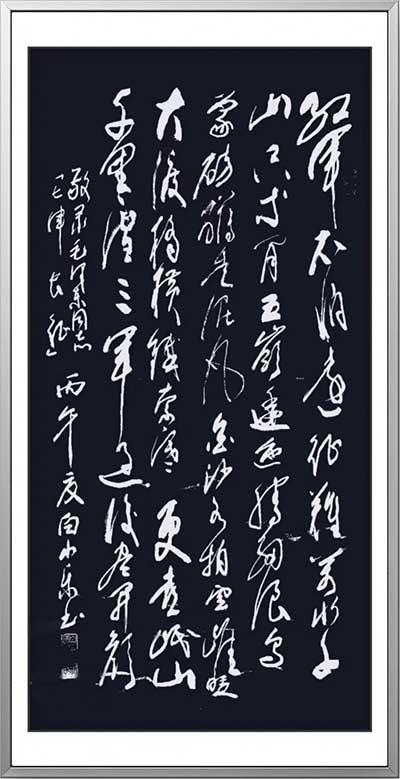 红軍不怕遠征難萬水千
山只等闲五嶺逶迤腾细浪乌
蒙磅礴走泥丸金沙水拍雲崖暖
大渡桥横铁索寒更喜岷山
千里雪三軍过後尽开颜
敬录毛泽东同志
「七律 长征」丙午夏白小乐书